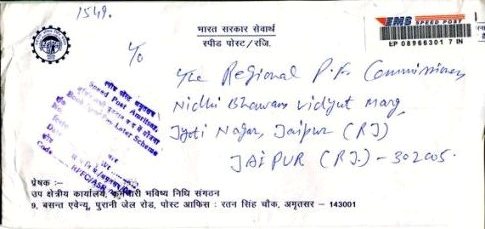 1549.
भारत सरकार सेवार्थ
स्पीड पोस्ट/रजि.
EMS SPEED POST
EP 08966301 7 IN
To
The Regional P.F. Commissioner
Nidhi Bhawan Vidyut Marg,
Jyoti Nagar, Jaipur (RJ)
JAIPUR (RJ.) - 302005.
Speed Post Amritsar,
Book Now Pay Later Scheme
प्रेषक :-
उप क्षेत्रीय कार्यालय, कर्मचारी भविष्य निधि संगठन
9, बसन्त एवेन्यू, पुरानी जेल रोड, पोस्ट आफिस : रतन सिंह चौक, अमृतसर - 143001